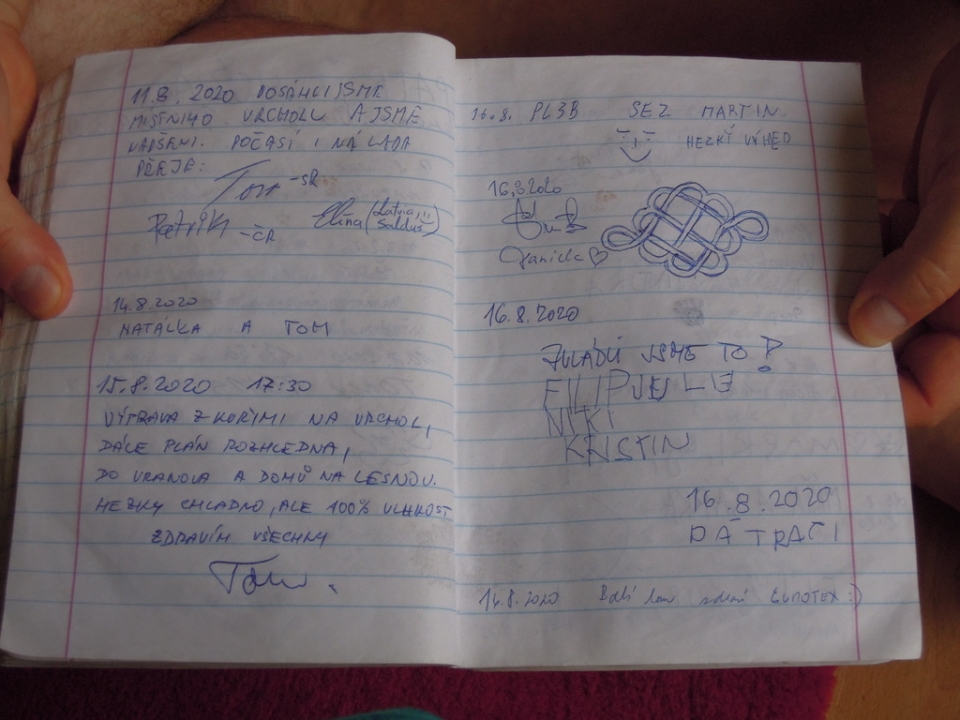 11.8. 2020 DOSÁHLI JSME
MÍSTNÍHO VRCHOLU A JSME
NADŠENI. POČASÍ I NÁLADA
PŘEJE:
Tom -SR
Patrik -ČR
Elīna (Latvia, Saldus)
14.8.2020
NATÁLKA A TOM
15.8.2020 17:30
VÝPRAVA Z KORYMI NA VRCHOL,
DÁLE PLÁN ROZHLEDNA,
DO VRANOVA A DOMŮ NA LESNOU.
HEZKY CHLADNO, ALE 100% VLHKOST
ZDRAVÍM VŠECHNY
Tom.
16.8. PLZB SEZ MARTIN
HEZKÝ VÝHED
16.8.2020
Janička
16.8.2020
ZVLÁDLI JSME TO!
FILIP JULIE
NIKI
KRISTIN
16.8.2020
PÁTRAČI
14.8.2020 EUROTEX :)